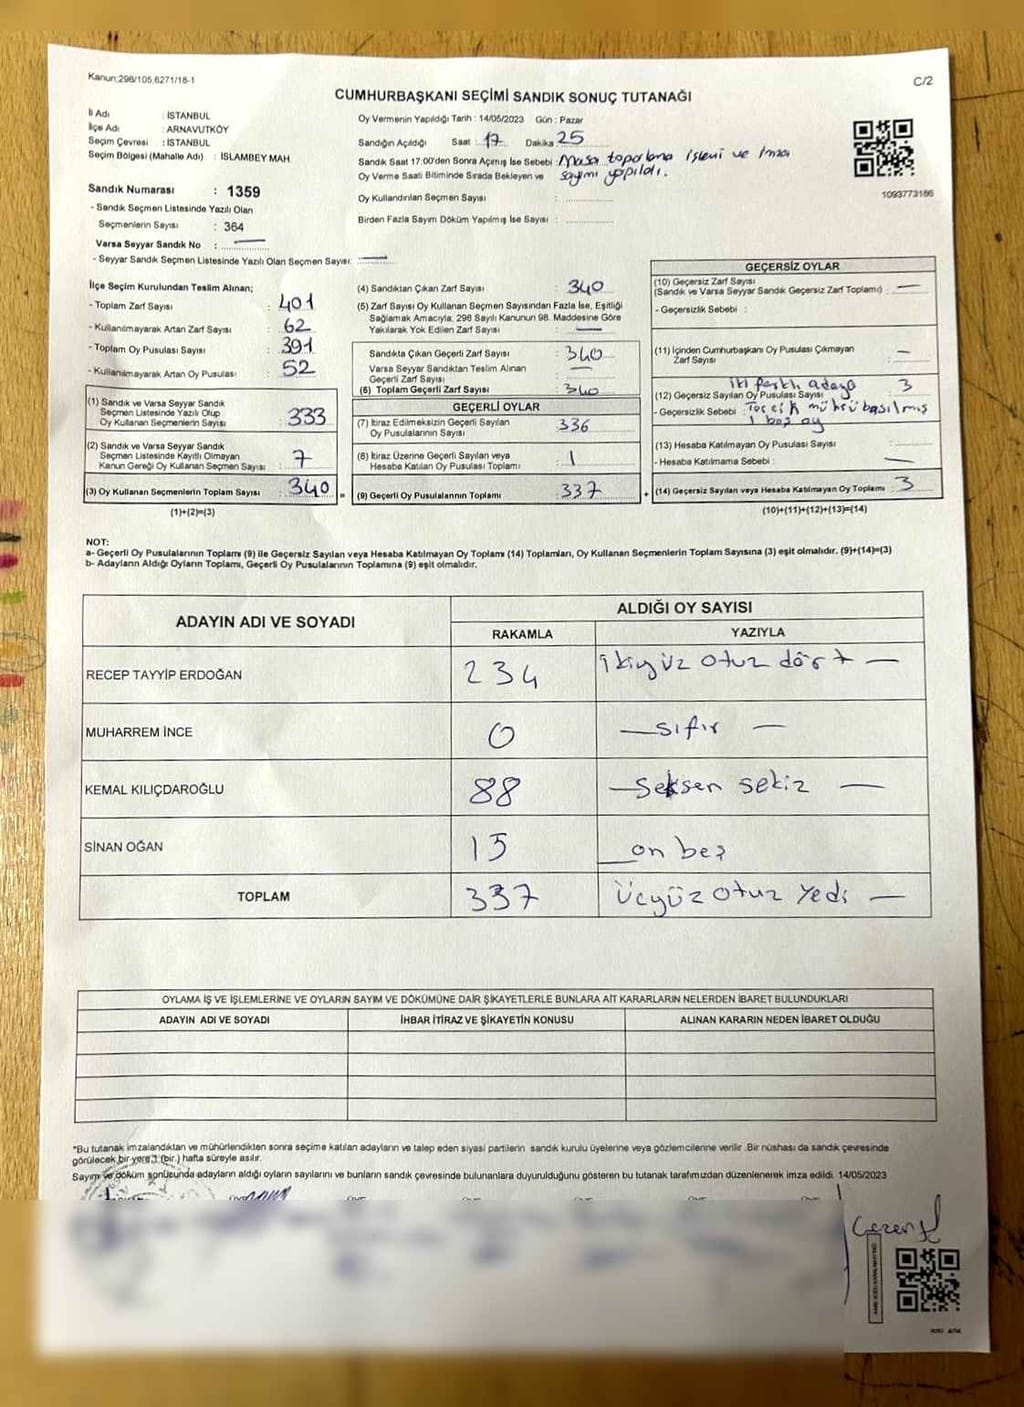 Kanun:298/105,6271/18-1
C/2
CUMHURBAŞKANI SEÇİMİ SANDIK SONUÇ TUTANAĞI
İl Adı : İSTANBUL
İlçe Adı : ARNAVUTKÖY
Seçim Çevresi : İSTANBUL
Seçim Bölgesi (Mahalle Adı) : İSLAMBEY MAH.
Sandık Numarası : 1359
- Sandık Seçmen Listesinde Yazılı Olan
Seçmenlerin Sayısı : 364
Varsa Seyyar Sandık No : —
- Seyyar Sandık Seçmen Listesinde Yazılı Olan Seçmen Sayısı: —
Oy Vermenin Yapıldığı Tarih : 14/05/2023 Gün : Pazar
Sandığın Açıldığı Saat : 17 Dakika : 25
Sandık Saat 17:00'den Sonra Açımış İse Sebebi : Masa toparlama işlemi ve imza
Oy Verme Saati Bitiminde Sırada Bekleyen ve sayımı yapıldı.
Oy Kullandırılan Seçmen Sayısı :
Birden Fazla Sayım Döküm Yapılmış İse Sayısı :
1093773186
İlçe Seçim Kurulundan Teslim Alınan;
- Toplam Zarf Sayısı : 401
- Kullanılmayarak Artan Zarf Sayısı : 62
- Toplam Oy Pusulası Sayısı : 391
- Kullanılmayarak Artan Oy Pusulası : 52
(1) Sandık ve Varsa Seyyar Sandık
Seçmen Listesinde Yazılı Olup
Oy Kullanan Seçmenlerin Sayısı : 333
(2) Sandık ve Varsa Seyyar Sandık
Seçmen Listesinde Kayıtlı Olmayan
Kanun Gereği Oy Kullanan Seçmen Sayısı : 7
(3) Oy Kullanan Seçmenlerin Toplam Sayısı : 340
(1)+(2)=(3)
(4) Sandıktan Çıkan Zarf Sayısı : 340
(5) Zarf Sayısı Oy Kullanan Seçmen Sayısından Fazla İse, Eşitliği
Sağlamak Amacıyla, 298 Sayılı Kanunun 98. Maddesine Göre
Yakılarak Yok Edilen Zarf Sayısı : —
Sandıkta Çıkan Geçerli Zarf Sayısı : 340
Varsa Seyyar Sandıktan Teslim Alınan
Geçerli Zarf Sayısı : —
(6) Toplam Geçerli Zarf Sayısı : 340
GEÇERLİ OYLAR
(7) İtiraz Edilmeksizin Geçerli Sayılan
Oy Pusulalarının Sayısı : 336
(8) İtiraz Üzerine Geçerli Sayılan veya
Hesaba Katılan Oy Pusulası Toplamı : 1
= (9) Geçerli Oy Pusulalarının Toplamı : 337 +
GEÇERSİZ OYLAR
(10) Geçersiz Zarf Sayısı
(Sandık ve Varsa Seyyar Sandık Geçersiz Zarf Toplamı) : —
- Geçersizlik Sebebi :
(11) İçinden Cumhurbaşkanı Oy Pusulası Çıkmayan
Zarf Sayısı : —
iki farklı adaya 3
(12) Geçersiz Sayılan Oy Pusulası Sayısı :
- Geçersizlik Sebebi : Tercih mührü basılmış
1 boş oy
(13) Hesaba Katılmayan Oy Pusulası Sayısı :
- Hesaba Katılmama Sebebi : —
(14) Geçersiz Sayılan veya Hesaba Katılmayan Oy Toplamı : 3
(10)+(11)+(12)+(13)=(14)
NOT:
a- Geçerli Oy Pusulalarının Toplamı (9) ile Geçersiz Sayılan veya Hesaba Katılmayan Oy Toplamı (14) Toplamları, Oy Kullanan Seçmenlerin Toplam Sayısına (3) eşit olmalıdır. (9)+(14)=(3)
b- Adayların Aldığı Oyların Toplamı, Geçerli Oy Pusulalarının Toplamına (9) eşit olmalıdır.
ADAYIN ADI VE SOYADI
ALDIĞI OY SAYISI
RAKAMLA YAZIYLA
RECEP TAYYİP ERDOĞAN 234 ikiyüz otuz dört —
MUHARREM İNCE 0 — sıfır —
KEMAL KILIÇDAROĞLU 88 — Seksen sekiz —
SİNAN OĞAN 15 — on beş
TOPLAM 337 üçyüz otuz yedi —
OYLAMA İŞ VE İŞLEMLERİNE VE OYLARIN SAYIM VE DÖKÜMÜNE DAİR ŞİKAYETLERLE BUNLARA AİT KARARLARIN NELERDEN İBARET BULUNDUKLARI
ADAYIN ADI VE SOYADI İHBAR İTİRAZ VE ŞİKAYETİN KONUSU ALINAN KARARIN NEDEN İBARET OLDUĞU
*Bu tutanak imzalandıktan ve mühürlendikten sonra seçime katılan adayların ve talep eden siyasi partilerin sandık kurulu üyelerine veya gözlemcilerine verilir .Bir nüshası da sandık çevresinde
görülecek bir yere 1 (bir.) hafta süreyle asılır.
Sayım ve döküm sonucunda adayların aldığı oyların sayılarını ve bunların sandık çevresinde bulunanlara duyurulduğunu gösteren bu tutanak tarafımızdan düzenlenerek imza edildi. 14/05/2023